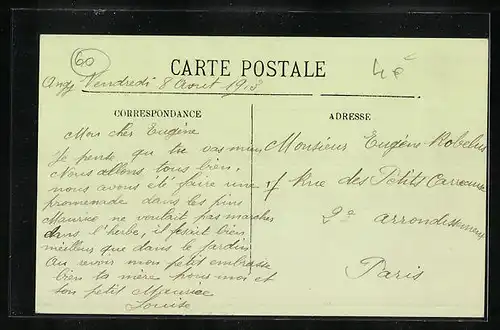 60
CARTE POSTALE
4 é
Vendredi 8 Aout 1913
CORRESPONDANCE
ADRESSE
Mon cher Eugène
Je pense que tu vas mieux
Nous allons tous bien,
nous avons été faire une
promenade dans les pins
Maurice ne voulait pas marcher
dans l'herbe, il fesait bien
meilleur que dans le jardin
Au revoir mon petit embrasse
bien ta mère pour moi et
ton petit Maurice
Louise
Monsieur Eugène
Rue des Petits Carreaux
2e arrondissement
Paris